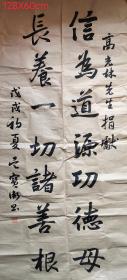 128X60cm
高吉林先生捐獻
信為道源功德母
長養一切諸善根
戊戌初夏